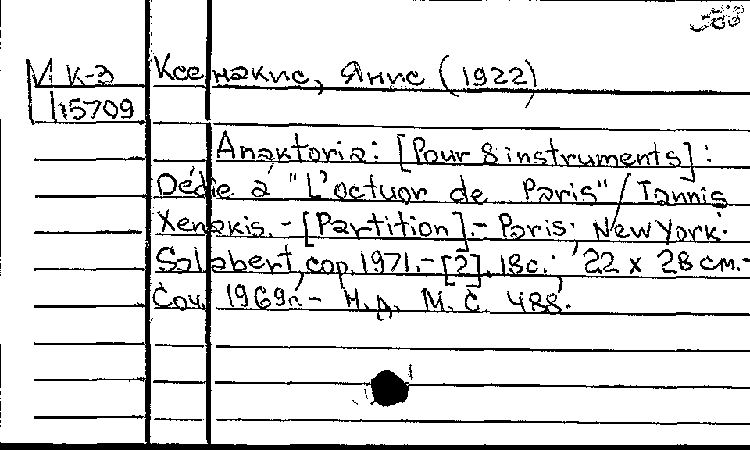 М К-3 Ксенакис, Янис (1922)
15709
Anaktoria: [Pour 8 instruments]:
Dédie à "L'octuor de Paris" / Iannis
Xenakis. - [Partition]. - Paris; New York:
Salabert, cop. 1971. - [2], 18 с.; 22 x 28 см. -
Соч. 1969г. - Н.Д. М.С. 488.